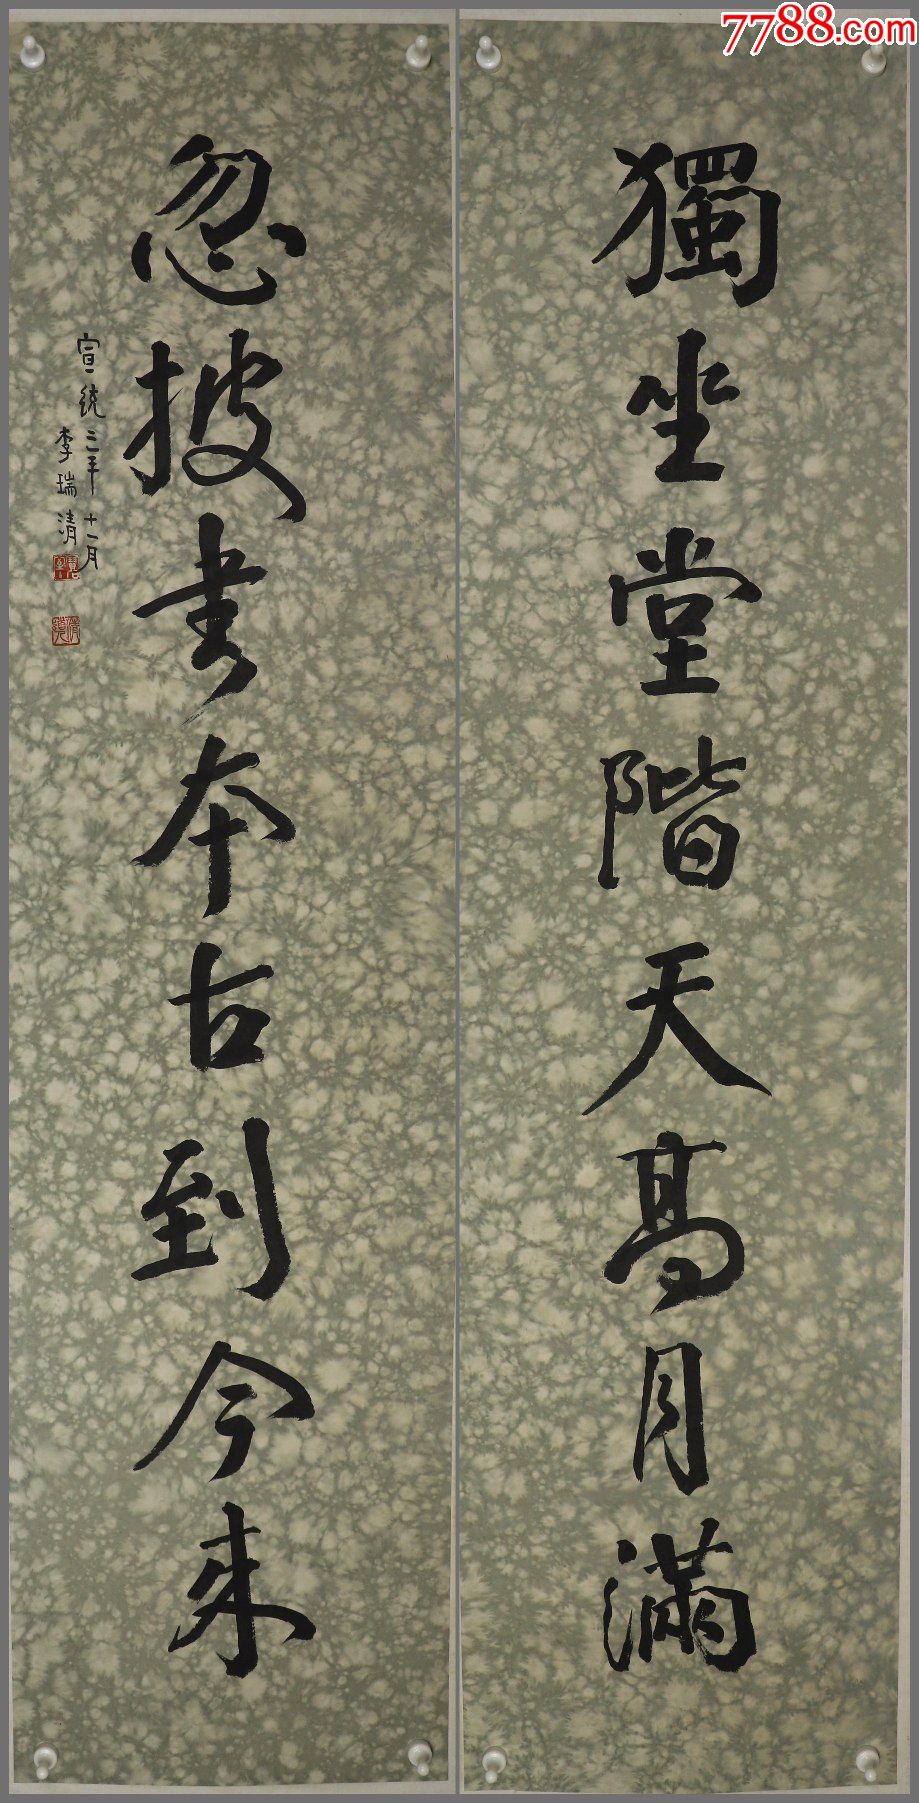 獨坐堂階天高月滿
忽披書本古到今来
宣统二年十一月
李瑞清
7788.com